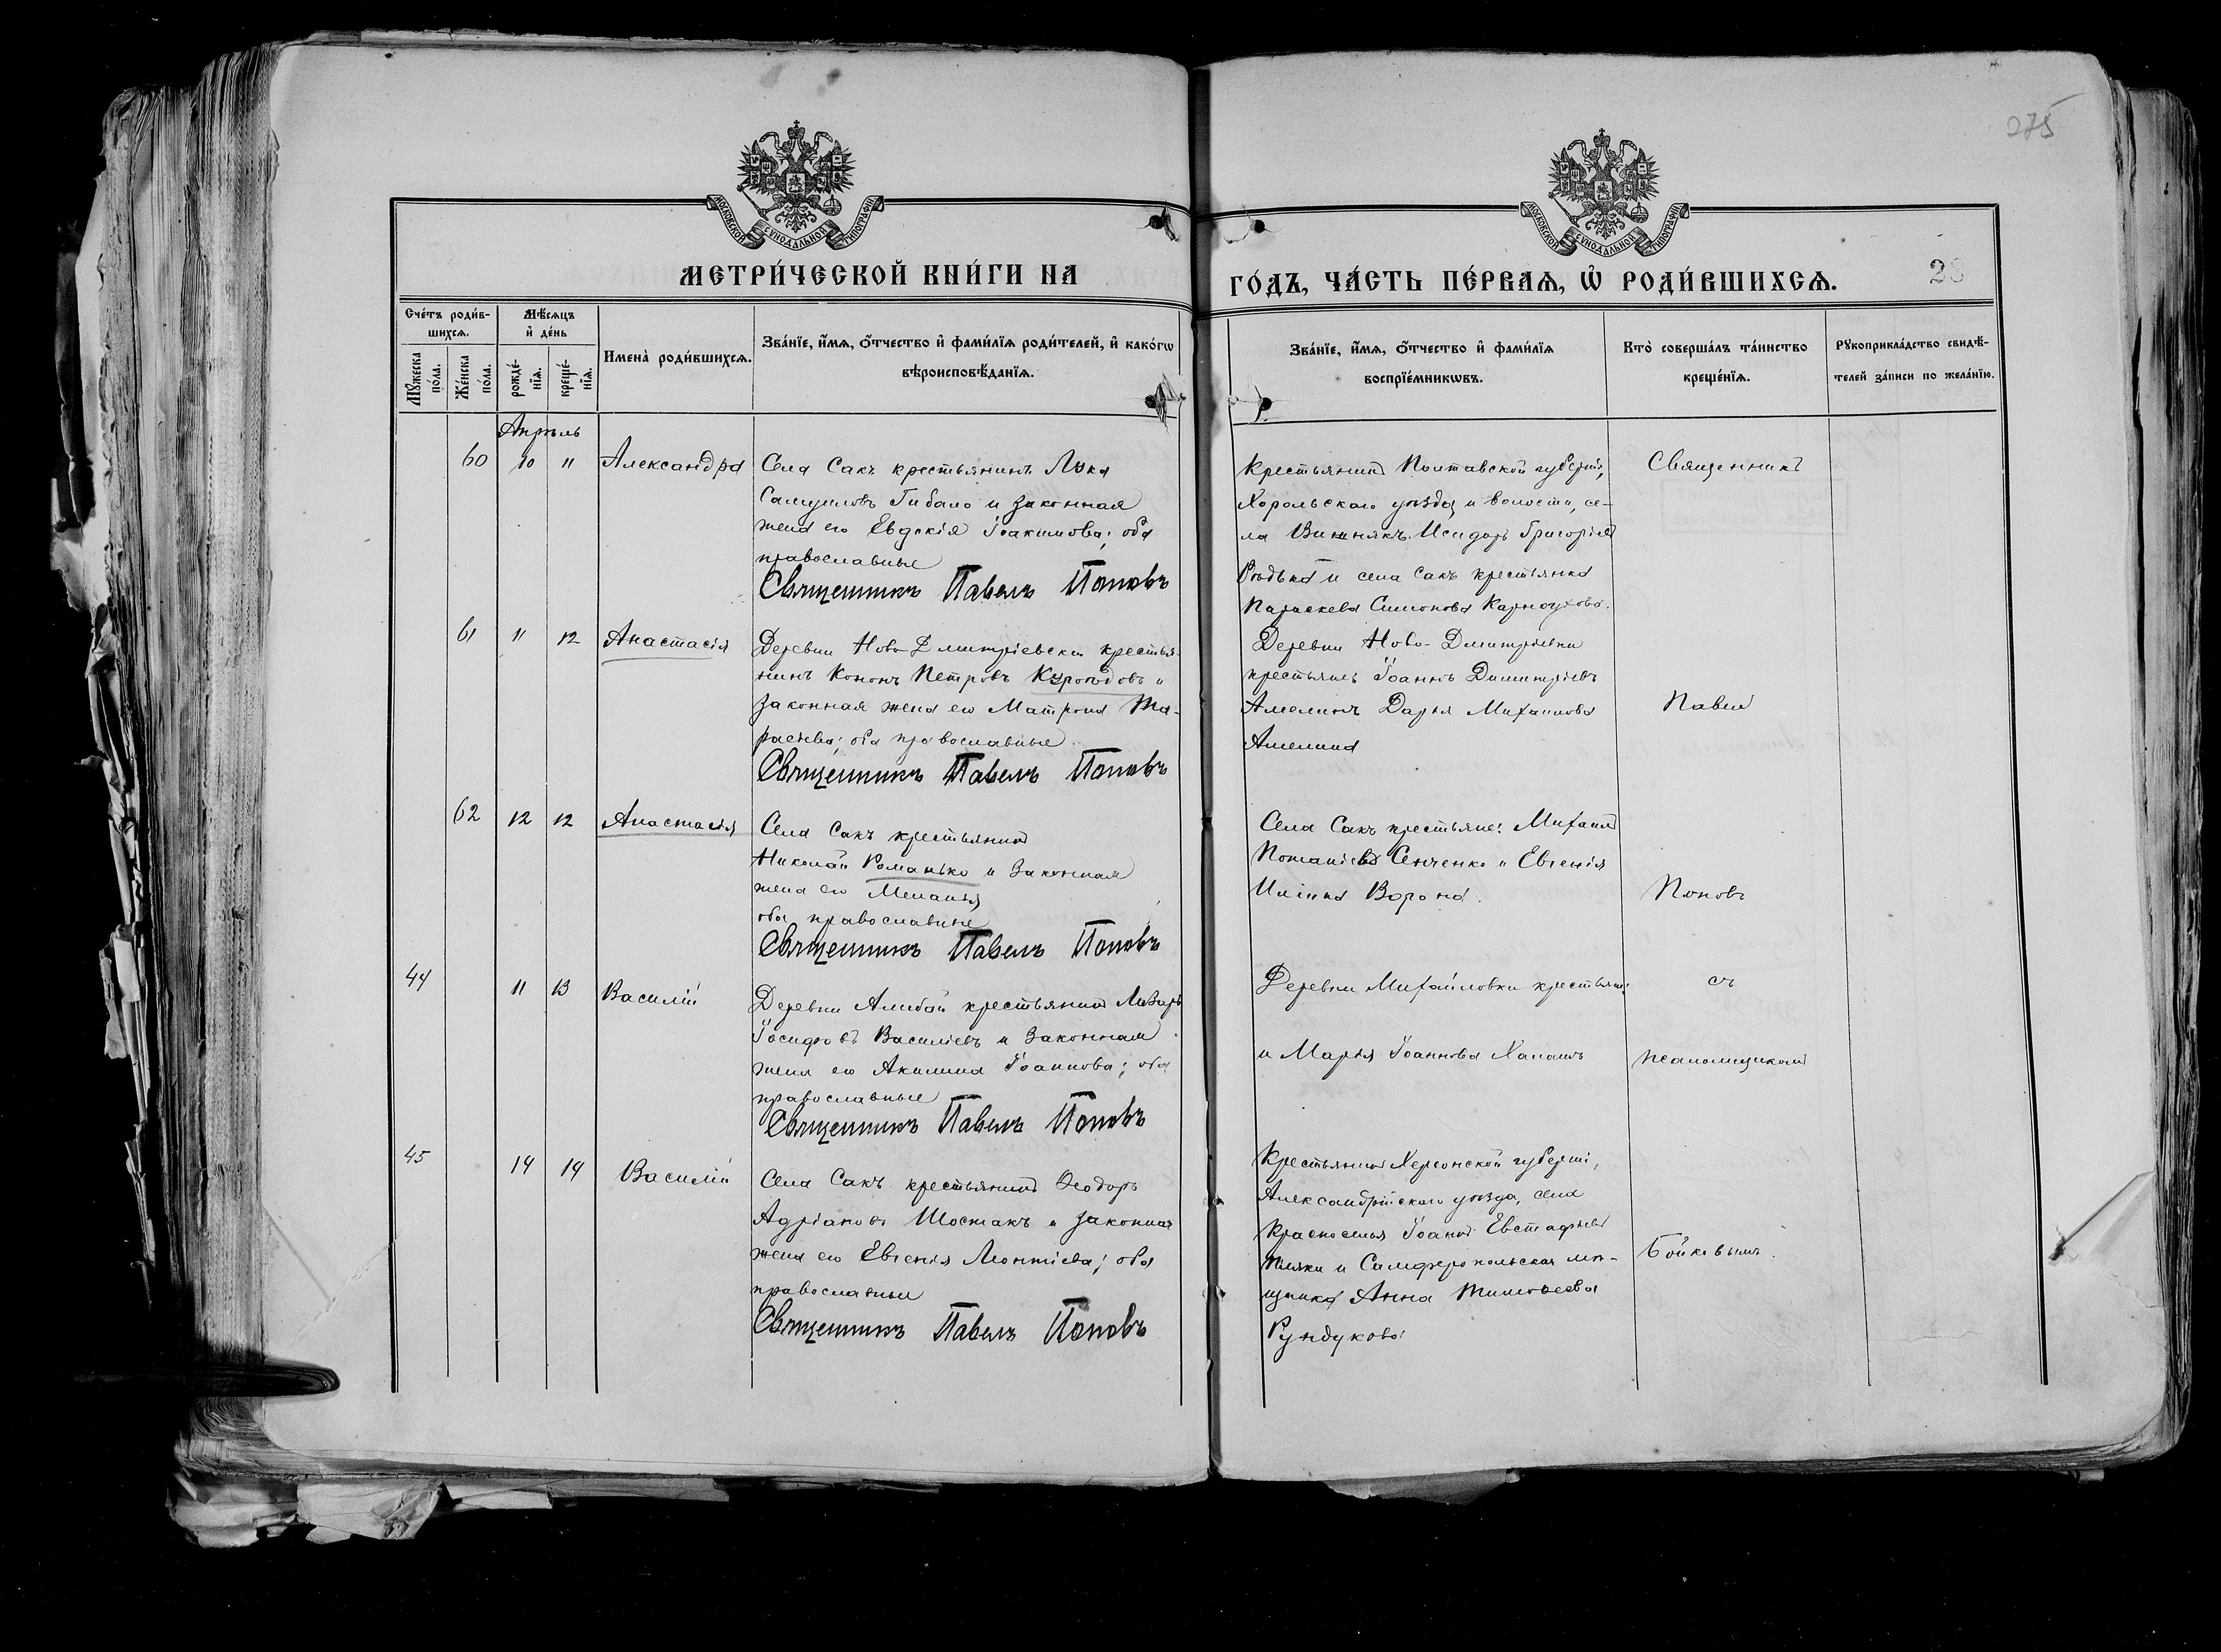 275
МОСКОВСКОЙ СѴНОДАЛЬНОЙ ТИПОГРАФІИ
МОСКОВСКОЙ СѴНОДАЛЬНОЙ ТИПОГРАФІИ
МЕТРИ́ЧЕСКОЙ КНИ́ГИ НА
ГО́ДЪ, ЧА́СТЬ ПЕ́РВАѦ, Ѡ҆ РОДИ́ВШИХСѦ.
28
Сче́тъ роди́в-
шихсѧ.
Мꙋ́жеска
по́ла.
Же́нска
по́ла.
Мѣ́сѧцъ
и҆ де́нь
рожде́-
нїѧ.
креще́-
нїѧ.
Имена̀ роди́вшихсѧ.
Зва́нїе, и҆́мѧ, ѻ҆́тчество и҆ фами́лїѧ роди́телей, и҆ како́гѡ
вѣроисповѣ́данїѧ.
Зва́нїе, и҆́мѧ, ѻ҆́тчество и҆ фами́лїѧ
воспрїе́мникѡвъ.
Кто̀ соверша́лъ та́инство
креще́нїѧ.
Рꙋкоприкла́дство свидѣ́-
телей за́писи по жела́нїю.
Апрѣль
60 10 11 Александра
Села Сакъ крестьянинъ Лука
Самуиловъ Гибало и законная
жена его Евдокія Іоакимова; оба
православные
Священникъ Павелъ Поповъ
Крестьянинъ Полтавской губерніи,
Хорольскаго уѣзда и волости, се-
ла Вишнякъ Исидоръ Григоріевъ
и села Сакъ крестьянка
Параскева Симонова Карнаухова.
Священникъ
61 11 12 Анастасія
Деревни Ново-Димитріевски крестья-
нинъ Кононъ Петровъ и
законная жена его Матрона Та-
расіева; оба православные.
Священникъ Павелъ Поповъ
Деревни Ново-Димитріевки
крестьяне: Іоаннъ Димитріевъ
Амелинъ Дарья Михаилова
Амелина
Павелъ
62 12 12 Анастасія
Села Сакъ крестьянинъ
Николай Романько и законная
жена его Меланья
оба православные
Священникъ Павелъ Поповъ
Села Сакъ крестьяне: Михаилъ
Потапіевъ Сенченко и Евгенія
Ильина Ворона.
Поповъ
44 11 13 Василій
Деревни Алибай крестьянинъ Лазарь
Іосифовъ Василіевъ и законная
жена его Акилина Іоаннова; оба
православные
Священникъ Павелъ Поповъ
Деревни Михайловки крестьяне:
и Марія Іоаннова
съ
псаломщикомъ
45 14 14 Василій
Села Сакъ крестьянинъ Ѳеодоръ
Адріановъ Шостакъ и законная
жена его Евгенія Леонтіева; оба
православные
Священникъ Павелъ Поповъ
Крестьянинъ Херсонской губерніи,
Александрійскаго уѣзда, села
Красноселья Іоаннъ Евстафіевъ
и Симферопольская мѣ-
щанка Анна Тимоѳеева
Рундукова
Бойковымъ.